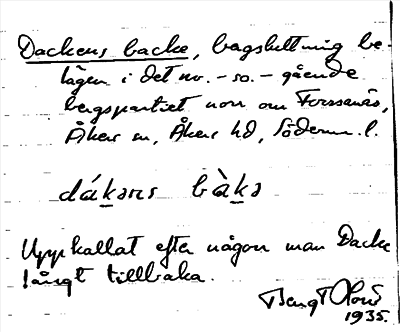 Dackens backe, bagsluttning be-
lägen i det nv.-so.-gående
bergspartiet norr om Forssanäs,
Åkers sn, Åkers hd, Söderm. l.
dákans bàka
Uppkallat efter någon man Dacke
långt tillbaka.
Bengt
1935.